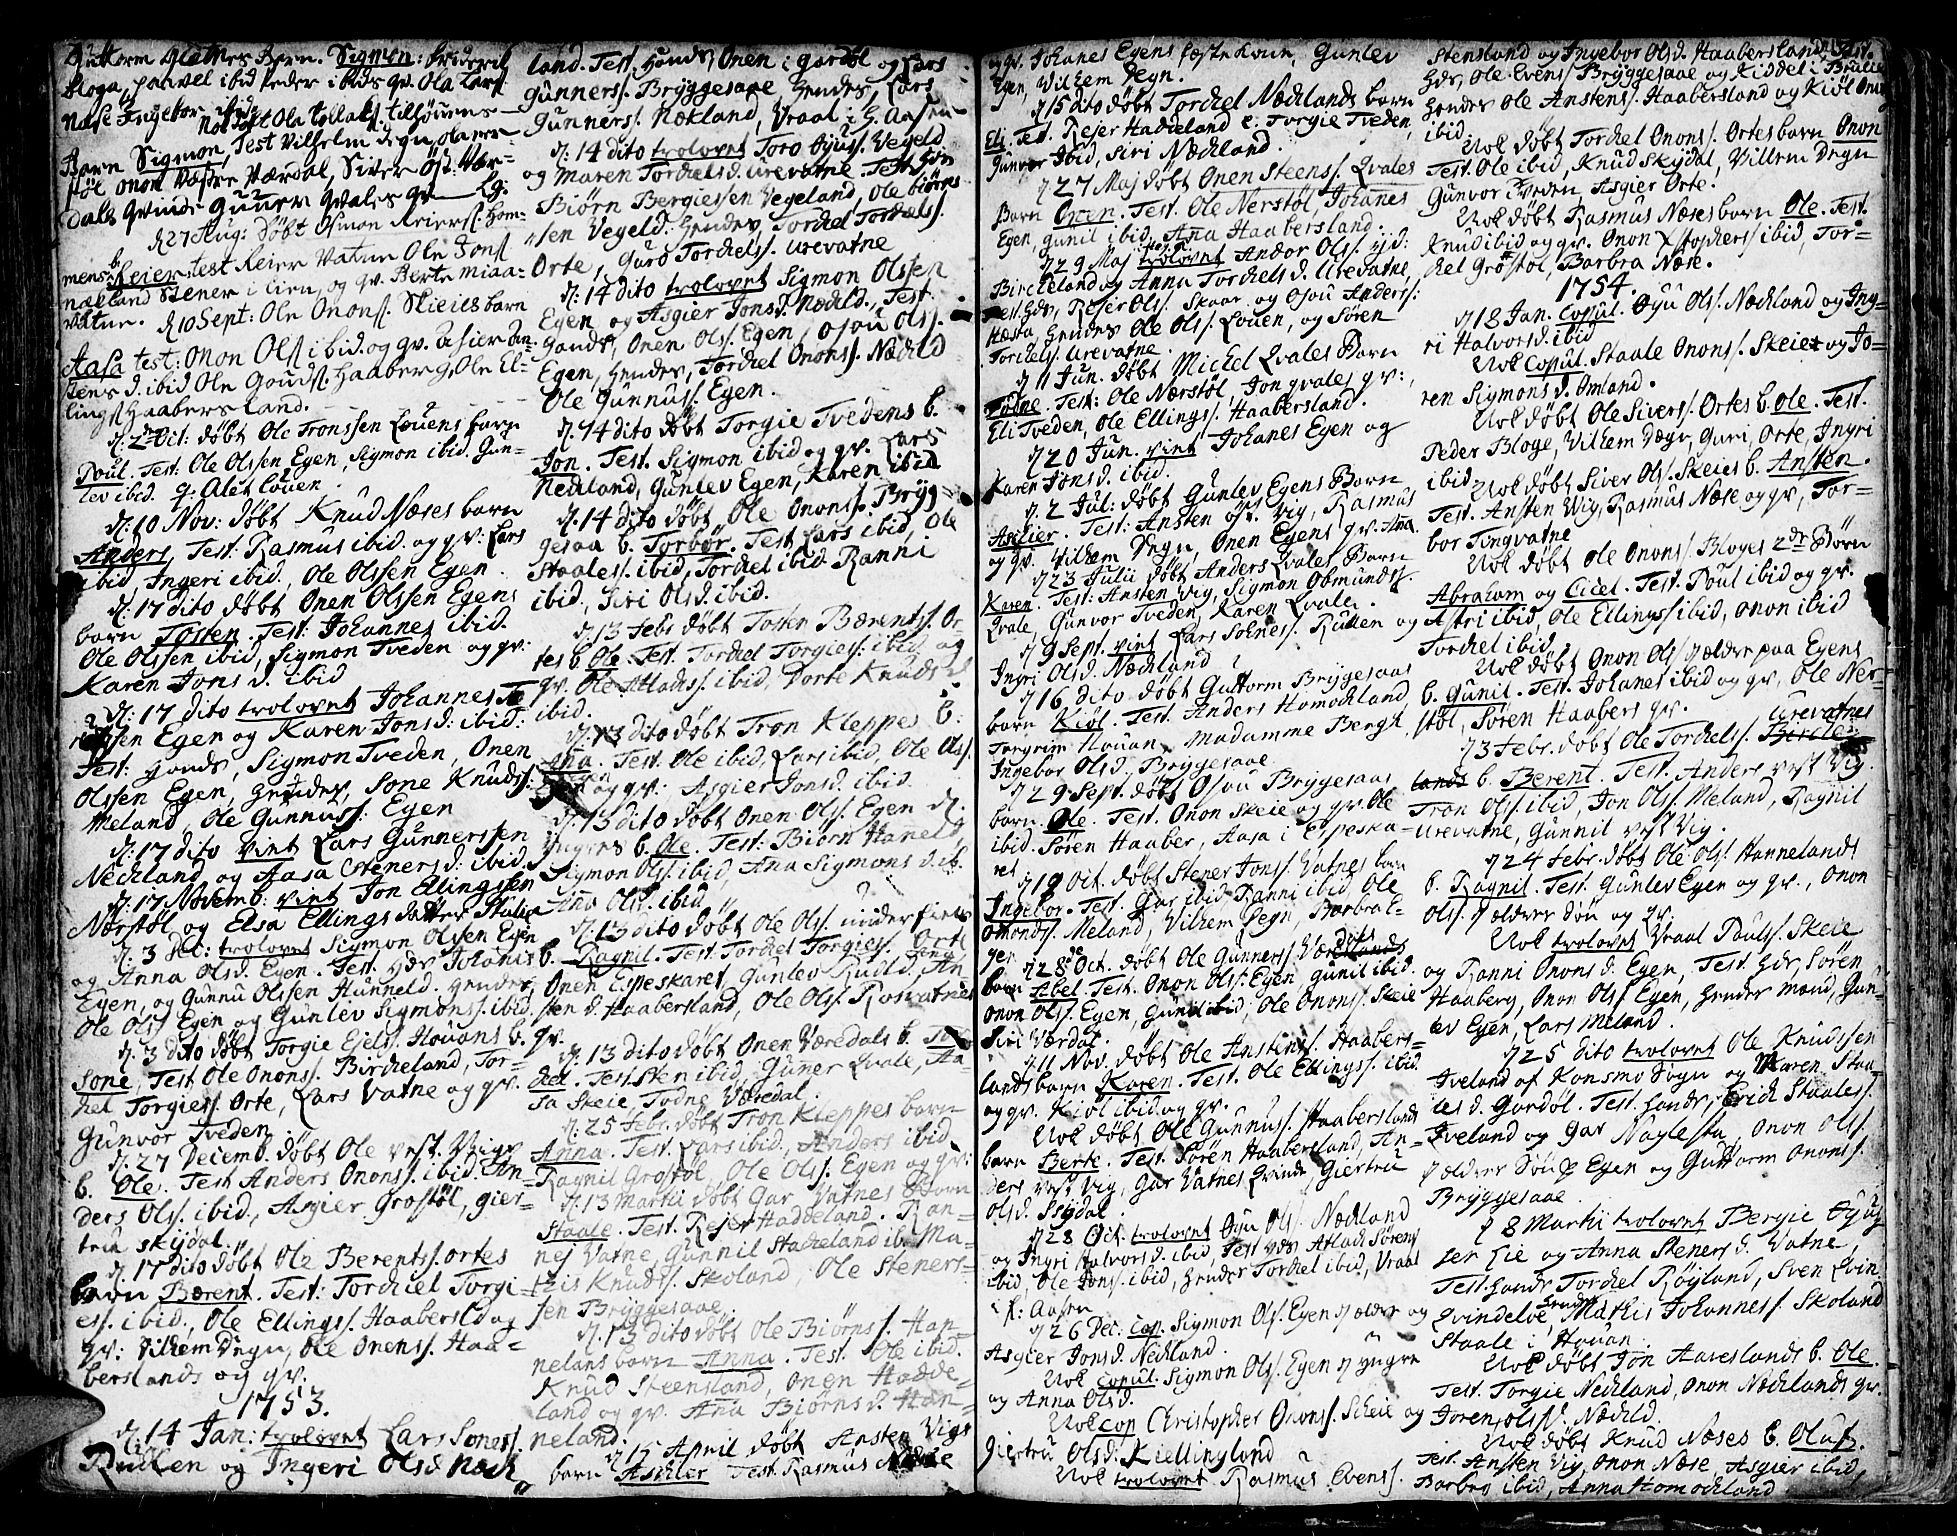 Guttorm Bletnes Barn. Sigmon: Friderik
Bloga, paavel ibid Peder ibids gv. Ola Lars
Næse Ingebor ibid
Nok Døbt Ola Tollaks
Barn Sigmon, Test Vilhelm Degn
støl onon Vastre Værdal, Siver
dals Qvinde Guner Qvales gv
d. 27 Aug: Døbt Osmon Reierss: Hom-
mens b. Reier test Reier Vatne Ole Jons
nækland Stener i Lien, og gv. Berte miaa-
Vatne. d. 10 Sept: Ole Onons. Skieies barn
Aasa test: Onon Ols ibid. og gv. Asier An-
stens d. ibid Ole Gouds. Haaber g. Ole El-
lings Haabersland.
d. 2 Oct: døbt Ole Tronssen Louens barn
Poul. Test: Ole Olssen Egen, Sigmon ibid. Gun-
lev ibid. g: Alet Louen.
d. 10 Nov: døbt Knud Næses barn
Anders, Test: Rasmus ibid. og gv: Lars
ibid Ingeri ibid, Ole Olssen Egen.
d. 17 dito døbt Onen Olssen Egens
barn Tosten. Test: Johannes ibid.
Ole Olssen ibid, Sigmon Tveden og gv:
Karen Jons d. ibid
d: 17 dito trolovet Johannes
Olssen Egen og Karen Jons d: ibid:
Test: Hands, Sigmon Tveden, Onen
Olssen Egen, Hendes, Sone Knuds:
Meland, Ole Gunnuss: Egen
d: 17 dito vint Lars Gunnerssen
Neckland og Aasa Steners d: ibid.
d: 17 Novemb: vint Jon Ellingssen
Nærstøl og Elsa Ellings datter
d. 3 Dec: trolovet Sigmon Olssen Egen
og Anna Ols d. Egen. Test. Hds Johanis
Egen, og Gunnu Olssen Hunneld. Hendes
Ole Ols Egen og Gunlev Sigmons. ibid,
d. 3 dito døbt Torgie Ejels. Houans b.
Sone, Test Ole Onons. Bircheland, Tor-
kel Torgies. Orte, Lars Vatne og gv.
Gunvor Tveden.
d. 27 Decemb. døbt Ole vest. Vigs
b. Ole. Test Anders Onons. ibid. An-
ders Ols. ibid., Asgier Grostøl, gier-
tru Skijdal.
d. 17 dito døbt Ole Berents. ortes
barn Bærent. Test: Torchel Torgi-
es. ibid., Ole Ellings. Haabersld og
gv: Vilhem Degn, Ole Onens. Haa-
berslands og gv.
1753.
d. 14 Jan: trolovet Lars Sones.
Rudlen og Ingeri Ols d Neck
land. Test. Hands, Onen i Gardøl og Lars
Gunners. Bryggesaae, Hendes, Lars
Gunners. Nekland, Vraal i H. Aasen
d: 14 dito trolovet Toro Oyus. Vegeld.
og Maren Torchels d. urevatne. Test
Biørn Bergiessen Vegeland, Ole Biørns
sen Vegeld. Hendes, Torchel Torchels.
Orte, Guro Torchels. urevatne
d: 14 dito trolovet Sigmon Olssen
Egen og Asgier Jons d. Nædld., Test.
Hands, Onen Ols. Egen, Osou Ols.
Egen, Hendes, Torchel Onons. Nædld
Ole Gunnus. Egen.
d. 14 dito døbt Torgie Tvedens b.
Jon. Test. Sigmon ibid og gv. Lars
Neckland, Gunlev Egen, Karen ibid
d. 14 dito døbt Ole Onons. Bryg-
gesaa b. Torbør. Test Lars ibid, Ole
Staales. ibid, Torchel ibid Ranni
ibid, Siri Ols d. ibid.
d. 13 Febr døbt Tosten Bærents. Or-
tes b. Ole. Test. Torchel Torgies. ibid og
gv. Ole Atlachs. ibid, Dorte Knuds d
ibid.
d. 13 dito døbt Tron Kleppes b:
Ana. Test. Ole ibid, Lars ibid, Ole Ols.
Egen og gv: Asgier Jons d. ibid.
d. 13 dito døbt Onen Ols. Egen d.
yngres b. Ole. Test: Biørn Haneld,
Sigmon Ols. ibid, Ana Sigmons d. ib.
Ana Ols. ibid.
d. 13 dito døbt Ole Ols.
b. Ragnil. Test. Torchel Torgies. Orte
Onen Espeskaret, Gunlev Rudld, An
sten d. Haabersland, Ole Ols. Rosvatnes
gv.
d. 13 dito døbt Onen Væredals b. Tor
chel. Test. Sten ibid, Guner Qvale, Aa-
sa Skeie, Todne Væredal.
d. 25 febr. døbt Tron Kleppes barn
Anna. Test. Lars ibid, Anders ibid
Ragnil Grostøl, Ole Ols. Egen og gv:
d. 13 Martii døbt Gar Vatnes Børn
Staale. Test. Rejer Haddeland. Ran-
nej Vatne, Gunnil Stackeland ib. Ma-
this Knuds. Skoland Ole Steners-
sen Bryggesaae.
d. 13 dito døbt Ole Biørns. Han-
nelans barn Anna. Test. Ole ibid.
Knud Steensland, Onen Hadde-
land og gv. Ana Biørns d. Han-
neland.
d. 15 April døbt Ansten Vigs
barn Aschier Test. Rasmus
og gv. Johanes Egens festekone, Gunlev
Egen, Vilhem Degn.
d 15 dito døbt Torchel Nedklands barn
Eli. Test. Rejer Haddeland og Torgie Tveden,
Gunvor ibid, Siri Nedkland.
d 27 Maj døbt Onen Steens. Qvales
Barn Onen. Test. Ole Nerstøl, Johanes
Egen, gunil ibid. Ana Haabersland.
d 29 Maj trolovet Andor Ols. yd:
Bircheland og Anna Torchels d. Urevatne,
Test. Hds, Rejer Ols. Skaar. og Osou Anders:
Hæsta Hendes Ole Ols. Louen, og Søren
Torchels. urevatne.
d 11 Jun. døbt Michel Qvales Barn
Todne. Test: Ole Nærstøl, Jon qvales gv:,
Eli Tveden, Ole Ellings. Haabersland.
d 20 Jun. vint Johanes Egen og
Karen Jons d. ibid.
d. 2 Jul: døbt Gunlev Egens Barn
Aschier. Test: Ansten Øst. Vig, Rasmus
og gv. Vilhem Degn, Onen Egens gv. Ana
d 23 Julii døbt Anders Qvales Barn
Karen. Test: Ansten Vig, Sigmon Obmunds.
Qvale, Gunvor Tveden, Karen Qvale.
d 9 Sept. vint Lars Sohnes. Rudlen og
Ingri Ols d. Nedkland
d 16 dito døbt Guttorm Bryggesaas
barn Kiøl. Test. Anders Homockland,
Torgrim Houan, Madamme Bergh,
Ingebor Ols d. Bryggesaae
d 29 Sept. døbt Osou Bryggesaas
barn. Ole. Test. Onon Skeie og gv. Ole
ibid. Søren Haaber, Aasa i Espeska-
ret
d 19 Oct. døbt Stener Jons. Vatnes barn
Ingebor. Test. Gar ibid. Ranni ibid, Ole
Omonds. Meland, Vilhem Degn, Barbra E-
gen
d 28 Oct. døbt Ole Gunners. Væredals
barn Abel. Test. Onon Ols. Egen, gunil ibid.
Onon Ols. Egen, Gunil ibid, Ole Onons. Skeie
Siri Værdal.
d 11 Nov. døbt Ole Anstens. Haabers-
lands barn Karen. Test. Ole Ellings. ibid
og gv. Kiøl ibid og gv.
Nok døbt Ole Gunnus. Haaberslands
barn Berte. Test. Søren Haabersland, An-
ders vest Vig, Gar Vatnes Qvinde, Giertru
Ols d. Skydal.
d 28 Oct. trolovet Oyu Ols. Nedkland
og Ingri Halvors d. ibid, Test Hds Atlack Sørens
ibid, Ole Jons. ibid, Hendes Torchel ibid, Vraal
i H: Aasen
d 26 Dec: Cop. Sigmon Ols. Egen d ældre og
Asgier Jons d. Neckland.
Nok Copul. Sigmon Ols. Egen d yngre
og Anna Ols d.
Nok cop Christopher Onons. Scheie og
Giertru Ols d. Kiellingland
Nok trolovet Rasmus Evens.
Stensland og Ingebor Ols d. Haabersland. Test.
Hds, Ole Evens. Bryggesaae og Kiddel i
Hendes Ole Anstens. Haabersland og Kiøl Onons
ibid.
Nok døbt Torchel Onons. Ortes barn Onon
Test. Ole ibid, Knud Skijdal, Villem Degn
Gunvor Tveden Asgier Orte.
Nok døbt Rasmus Næses barn Ole. Test.
Knud ibid og gv. Onon Xstophers ibid, Tor-
chel Grøstøl, Barbra Næse.
1754.
d 18 Jan. Copul. Oyu Ols. Nedkland og Ing-
ri Halvors d. ibid
Nok Copul. Staale Onons. Skeie og Jo-
ren Sigmons d. Omland.
Nok døbt Ole Sivers. Ortes b. Ole. Test.
Peder Bloge, Vilhem Degn, Guri, Orte, Ingri
ibid.
Nok døbt Siver Ols. Skeies b. Ansten.
Test. Ansten Wig, Rasmus Næse og gv, Tor-
bor Tingvatne
Nok døbt Ole Onons. Bloges 2de Børn
Abraham og Cicel. Test. Poul ibid og gv.
Astri ibid, Ole Ellings ibid, onon ibid
Torchel ibid
Nok døbt Onon Ols d ældre paa Egens
b. Gunil. Test. Johanes ibid og gv, Ole Ner-
støl, Søren Haabers gv.
d 3 Febr. døbt Ole Torchels. Urevatnes
b. Berent. Test. Anders vest Vig.
Tron Ols. ibid, Jon Ols. Meland, Ragnil
Urevatne, Gunnil vest Vig.
d 24 Febr. døbt Ole Ols. Hannelands
b. Ragnil. Test. Gunlev Egen og gv., Onon
Ols. d ældres Søn og gv.
Nok trolovet Vraal Pauls. Skeie
og Ranni Onons d. Egen, Test. Hds, Søren
Haaberg, Onon Ols. Egen, Hendes Mand, Gun-
lev Egen, Lars Meland.
d 25 dito trolovet Ole Knudssen
Iveland af Konsmo Sogn og Maren Staa-
les d. Gardøl. Test. Hands, Erich Staales.
Iveland og Gar Naglestad, Onon Ols.
d ældres Søn Egen og Guttorm Onons.
Bryggesaae
d 8 Martii trolovet Bergie Oyus
sen Lie og Anna Steners d. Vatne,
Test. Hands Torchel Røjland, Sven
Hendes Mathis Johannes. Skoland
Staale i Houan.
Nok døbt Jon Aareslands b. Ole.
Test. Torgie Neckland, onon Nedklands gv.
Joren ols d. Nædld.
Nok døbt Knud Næses b. Oluf.
Test. Ansten Vig, onon Næse, Asgier ibid,
Barbro ibid, Anna Homockland